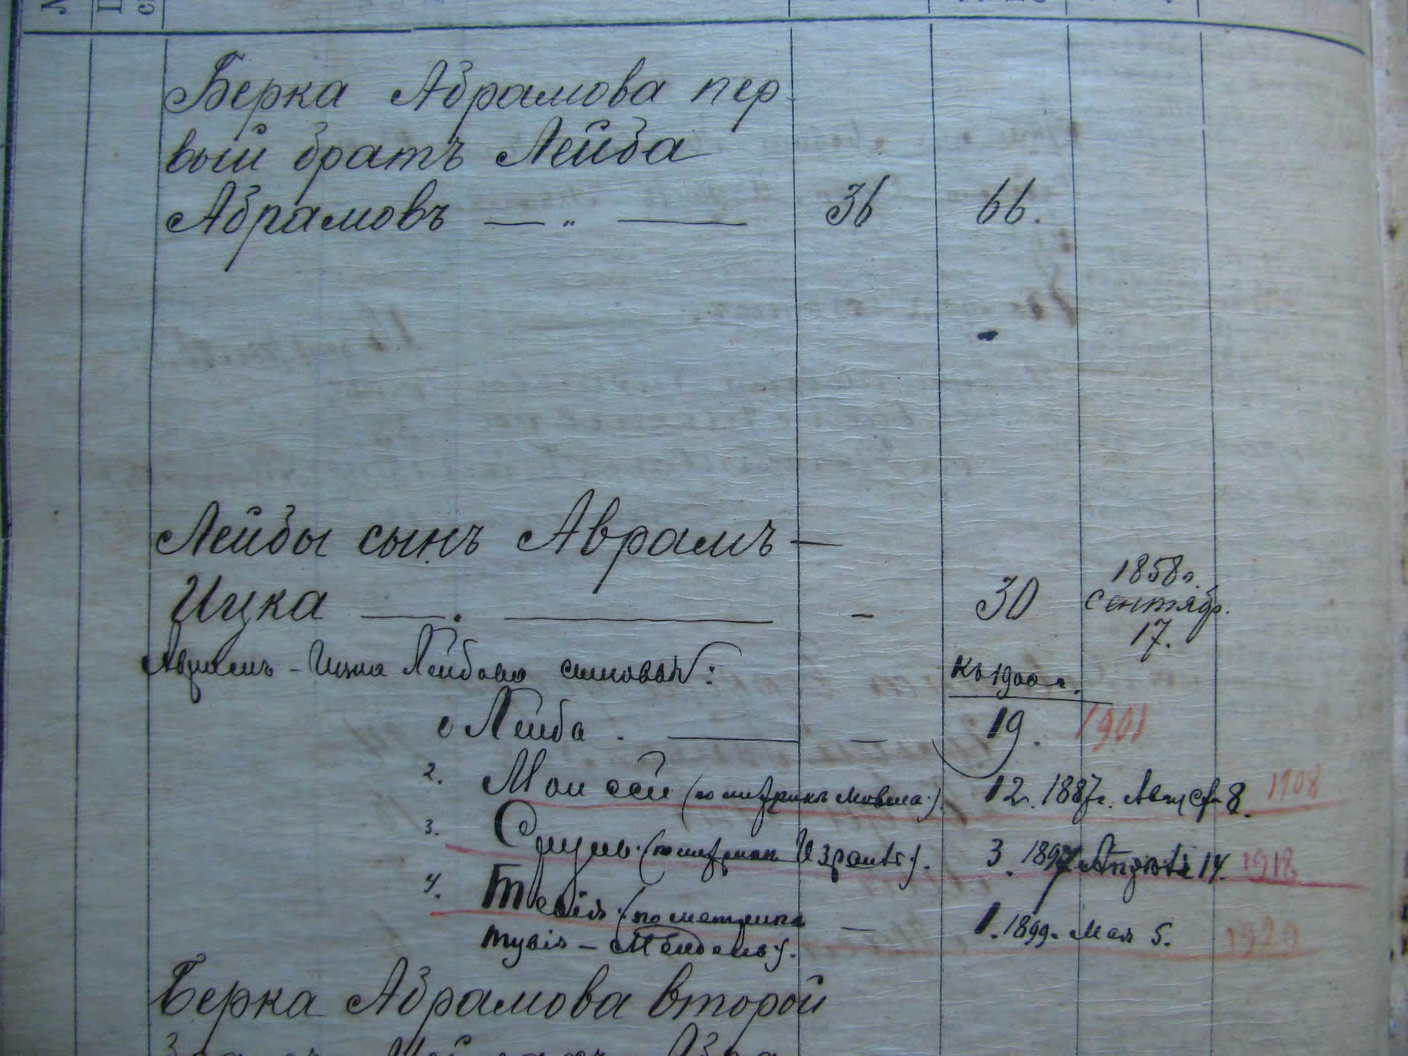 Берка Абрамова пер
вый братъ Лейба
Абрамовъ — „ — 36 66.
Лейбы сынъ Аврамъ —
Ицка — . — - 30 1858 г. Сентябр. 17.
Аврамъ - Ицка Лейбова сыновья: Къ 1900 г.
Лейба . — — 19. 1901
2. Моисей (по метрикѣ Мовша). 12. 1887 г. Август 8. 1908
3. Сруль. (по метрикѣ Израиль). 3. 1897 Апреля 14. 1918
4. Тевія. (по метрике — 1. 1899 г. Мая 5. 1920
Тувія - Мендель).
Берка Абрамова второй